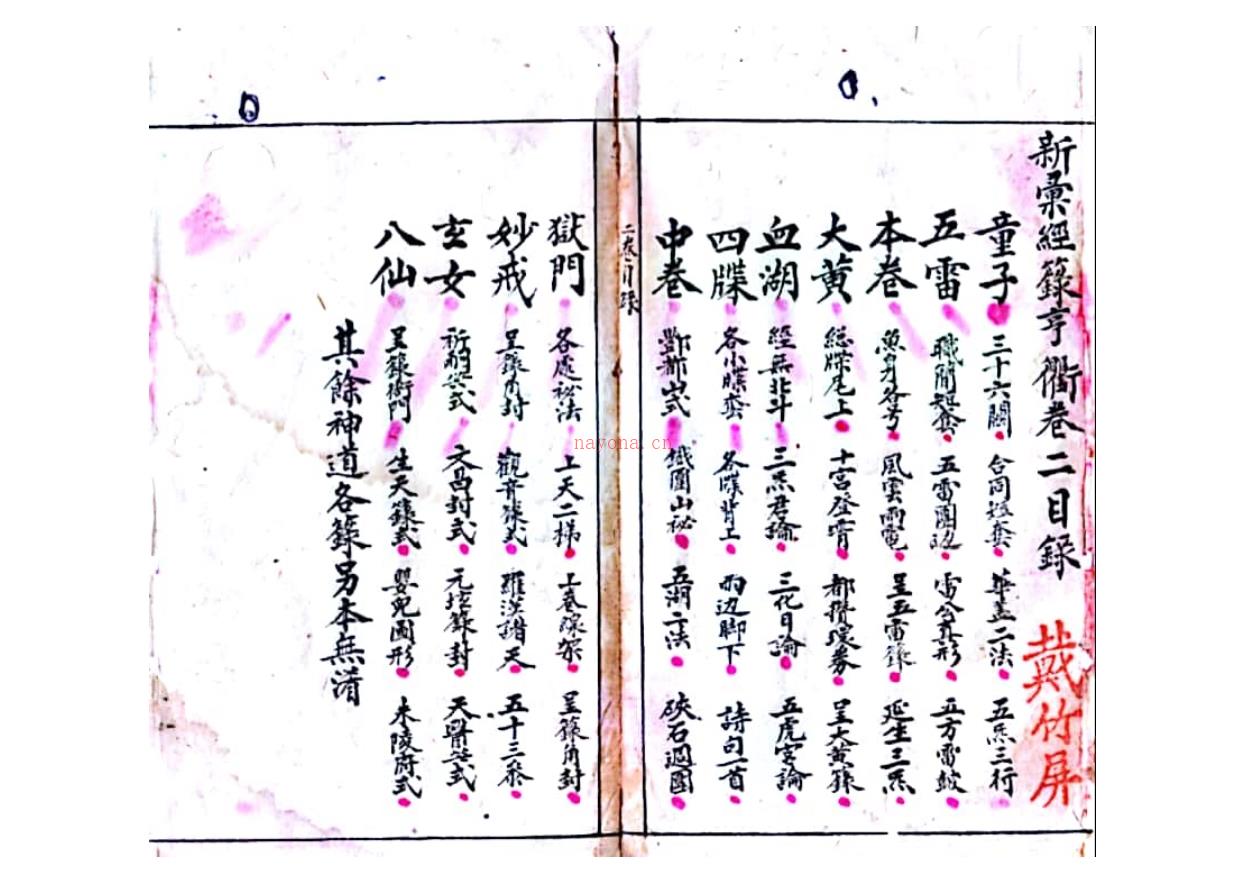 新彙經籙亨衢卷二目錄 戴竹屏
童子 三十六關 合同短套 華盖二法 五炁三行
五雷 職簡短套 五雷團边 雷公真形 五方雷皷
本卷 魚身各号 風雲雨電 呈五雷籙 延生三炁
大黄 總牒尾上 十宮登霄 都攢環券 呈大黄籙
血湖 經無北斗 三炁君論 三化日論 五虎宮論
四牒 各小牒套 各牒背上 兩边脚下 詩句一首
中卷 酆都山式 鐵圍山秘 五湖二法 硤石週圍
二卷目錄
獄門 各處秘法 上天二梯 上卷 呈籙角封
妙戒 呈籙角封 觀音籙式 羅漢諸天 五十三參
玄女 祈嗣 式 文昌封式 元坛籙封 天醫 式
八仙 呈籙衙門 生天籙式 嬰兒圖形 木陵府式
其餘神道各籙另本無淆
nayona.cn